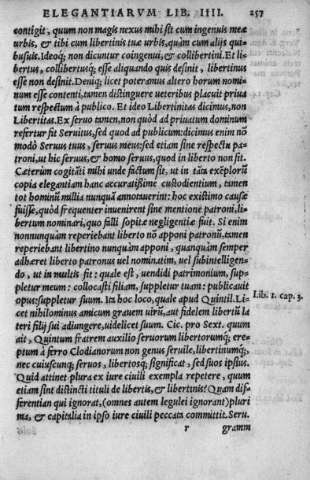 ELEGANTIARVM LIB. IIII. 257
contigit, quum non magis nexus mihi sit cum ingenuis meæ
urbis, & tibi cum libertinis tuæ urbis, quàm cum alijs qui-
busuis. Ideoq; non dicuntur coingenui, & collibertini. Et li-
bertus, collibertusq; esse aliquando quis desinit, libertinus
esse non desinit. Deniq; licet poterant altero horum nomi-
num esse contenti, tamen distinguere ueteribus placuit priua
tum respectum à publico. Et ideo Libertinitas dicimus, non
Libertitas. Ex seruo tamen, non quòd ad priuatum dominum
refertur fit Seruitus, sed quod ad publicum: dicimus enim nõ
modò Seruus tuus, seruus meus: sed etiam sine respectu pa-
troni, ut hic seruus, & homo seruus, quod in liberto non fit.
Cæterùm cogitãti mihi unde factum sit, ut in tãta exẽplorũ
copia elegantiam hanc accuratißime custodientium, tamen
tot hominũ millia nunquã annotauerint: hoc existimo causæ
fuisse, quòd frequenter inuenirent sine mentione patroni, li-
bertum nominari, quo falli sopitæ negligentiæ fuit. Si enim
nonnunquàm reperiebant liberto nõ apponi patronũ, tamen
reperiebant libertino nunquàm apponi, quanquàm semper
adhæret liberto patronus uel nominatim, uel subintelligen-
do, ut in multis fit: quale est, uendidi patrimonium, sup-
pletur meum: collocasti filiam, suppletur tuam: publicauit
opus: suppletur suum. Ita hoc loco, quale apud Quintil. Li-
cet nihilominus amicum grauem uirũ, aut fidelem libertũ la
teri filij sui adiungere, uidelicet suum. Cic. pro Sext. quum
ait, Quintum fratrem auxilio seruorum libertorumq;, ere-
ptum à ferro Clodianorum non genus seruile, libertinumq;,
nec cuiuscunq; seruos, libertosq; significat, sed suos ipsius.
Quid attinet plura ex iure ciuili exempla repetere, quum
etiam sint distincti tituli de libertis, & libertinis? Quam dif-
ferentiam qui ignorat, (omnes autem legulei ignorant) pluri
ma, & capitalia in ipso iure ciuili peccata committit. Seru.
Lib. 1. cap. 3.
r gramm